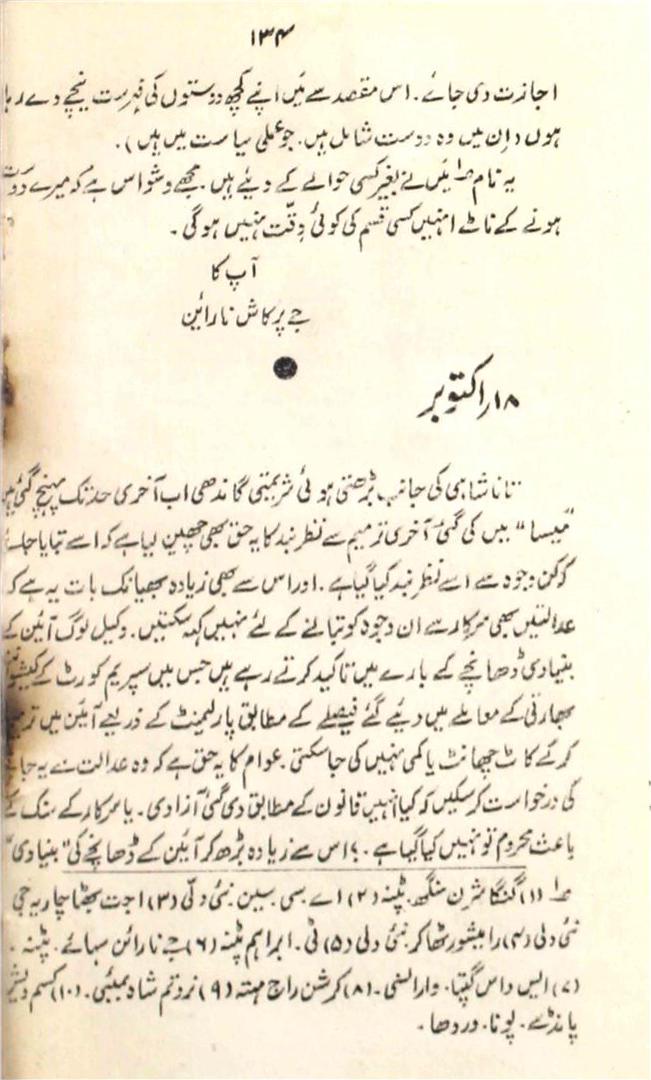 ۱۳۴
اجازت دی جائے۔ اس مقصد سے میں اپنے کچھ دوستوں کی فہرست نیچے دے رہا
ہوں (اِن میں وہ دوست شامل ہیں۔ جو عملی سیاست میں ہیں)۔
یہ نام ۱ میں نے بغیر کسی حوالے کے دیئے ہیں۔ مجھے وشواس ہے کہ میرے دوست
ہونے کے ناٹے انہیں کسی قسم کی کوئی دِقّت نہیں ہوگی۔
آپ کا
جے پرکاش نارائین
۱۸ر اکتوبر
تانا شاہی کی جانب بڑھتی ہوئی شریمتی گاندھی اب آخری حد تک پہنچ گئی ہیں
"میسا" میں کی گئی آخری ترمیم سے نظر بند کا یہ حق بھی چھین لیا ہے کہ اسے بتایا جائے
کہ کن وجوہ سے اسے نظر بند کیا گیا ہے۔ اور اس سے بھی زیادہ بھیانک بات یہ ہے کہ
عدالتیں بھی سرکار سے ان وجوہ کو بتانے کے لئے نہیں کہہ سکتیں۔ وکیل لوگ آئین کے
بنیادی ڈھانچے کے بارے میں تاکید کرتے رہے ہیں جس میں سپریم کورٹ کے کیشو
بھارتی کے معاملے میں دیئے گئے فیصلے کے مطابق پارلیمنٹ کے ذریعے آئین میں ترمیم
کرکے کاٹ چھانٹ یا کمی نہیں کی جاسکتی۔ عوام کا یہ حق ہے کہ وہ عدالت سے یہ جاننے
کی درخواست کرسکیں کہ کیا انہیں قانون کے مطابق دی گئی آزادی۔ یا سرکار کے سنک کے
باعث محروم تو نہیں کیا گیا ہے۔؟ اس سے زیادہ بڑھ کر آئین کے ڈھانچے کی "بنیادی"
۱ (۱) گنگا شرن سنگھ۔ پٹنہ (۲) اے سی سین نئی دلّی (۳) اجت بھٹا چاریہ جی
نئی دلی (۴) رامیشور ٹھاکر نئی دلی (۵) ٹی۔ ابراہم پٹنہ (۶) جے نارائن سہائے۔ پٹنہ۔
(۷) ایس داس گپتا۔ وارانسی۔ (۸) کرشن راج مہتہ (۹) نروتم شاہ بمبئی۔ (۱۰) کسم دیشپانڈے
پانڈے۔ پونا۔ وردھا۔